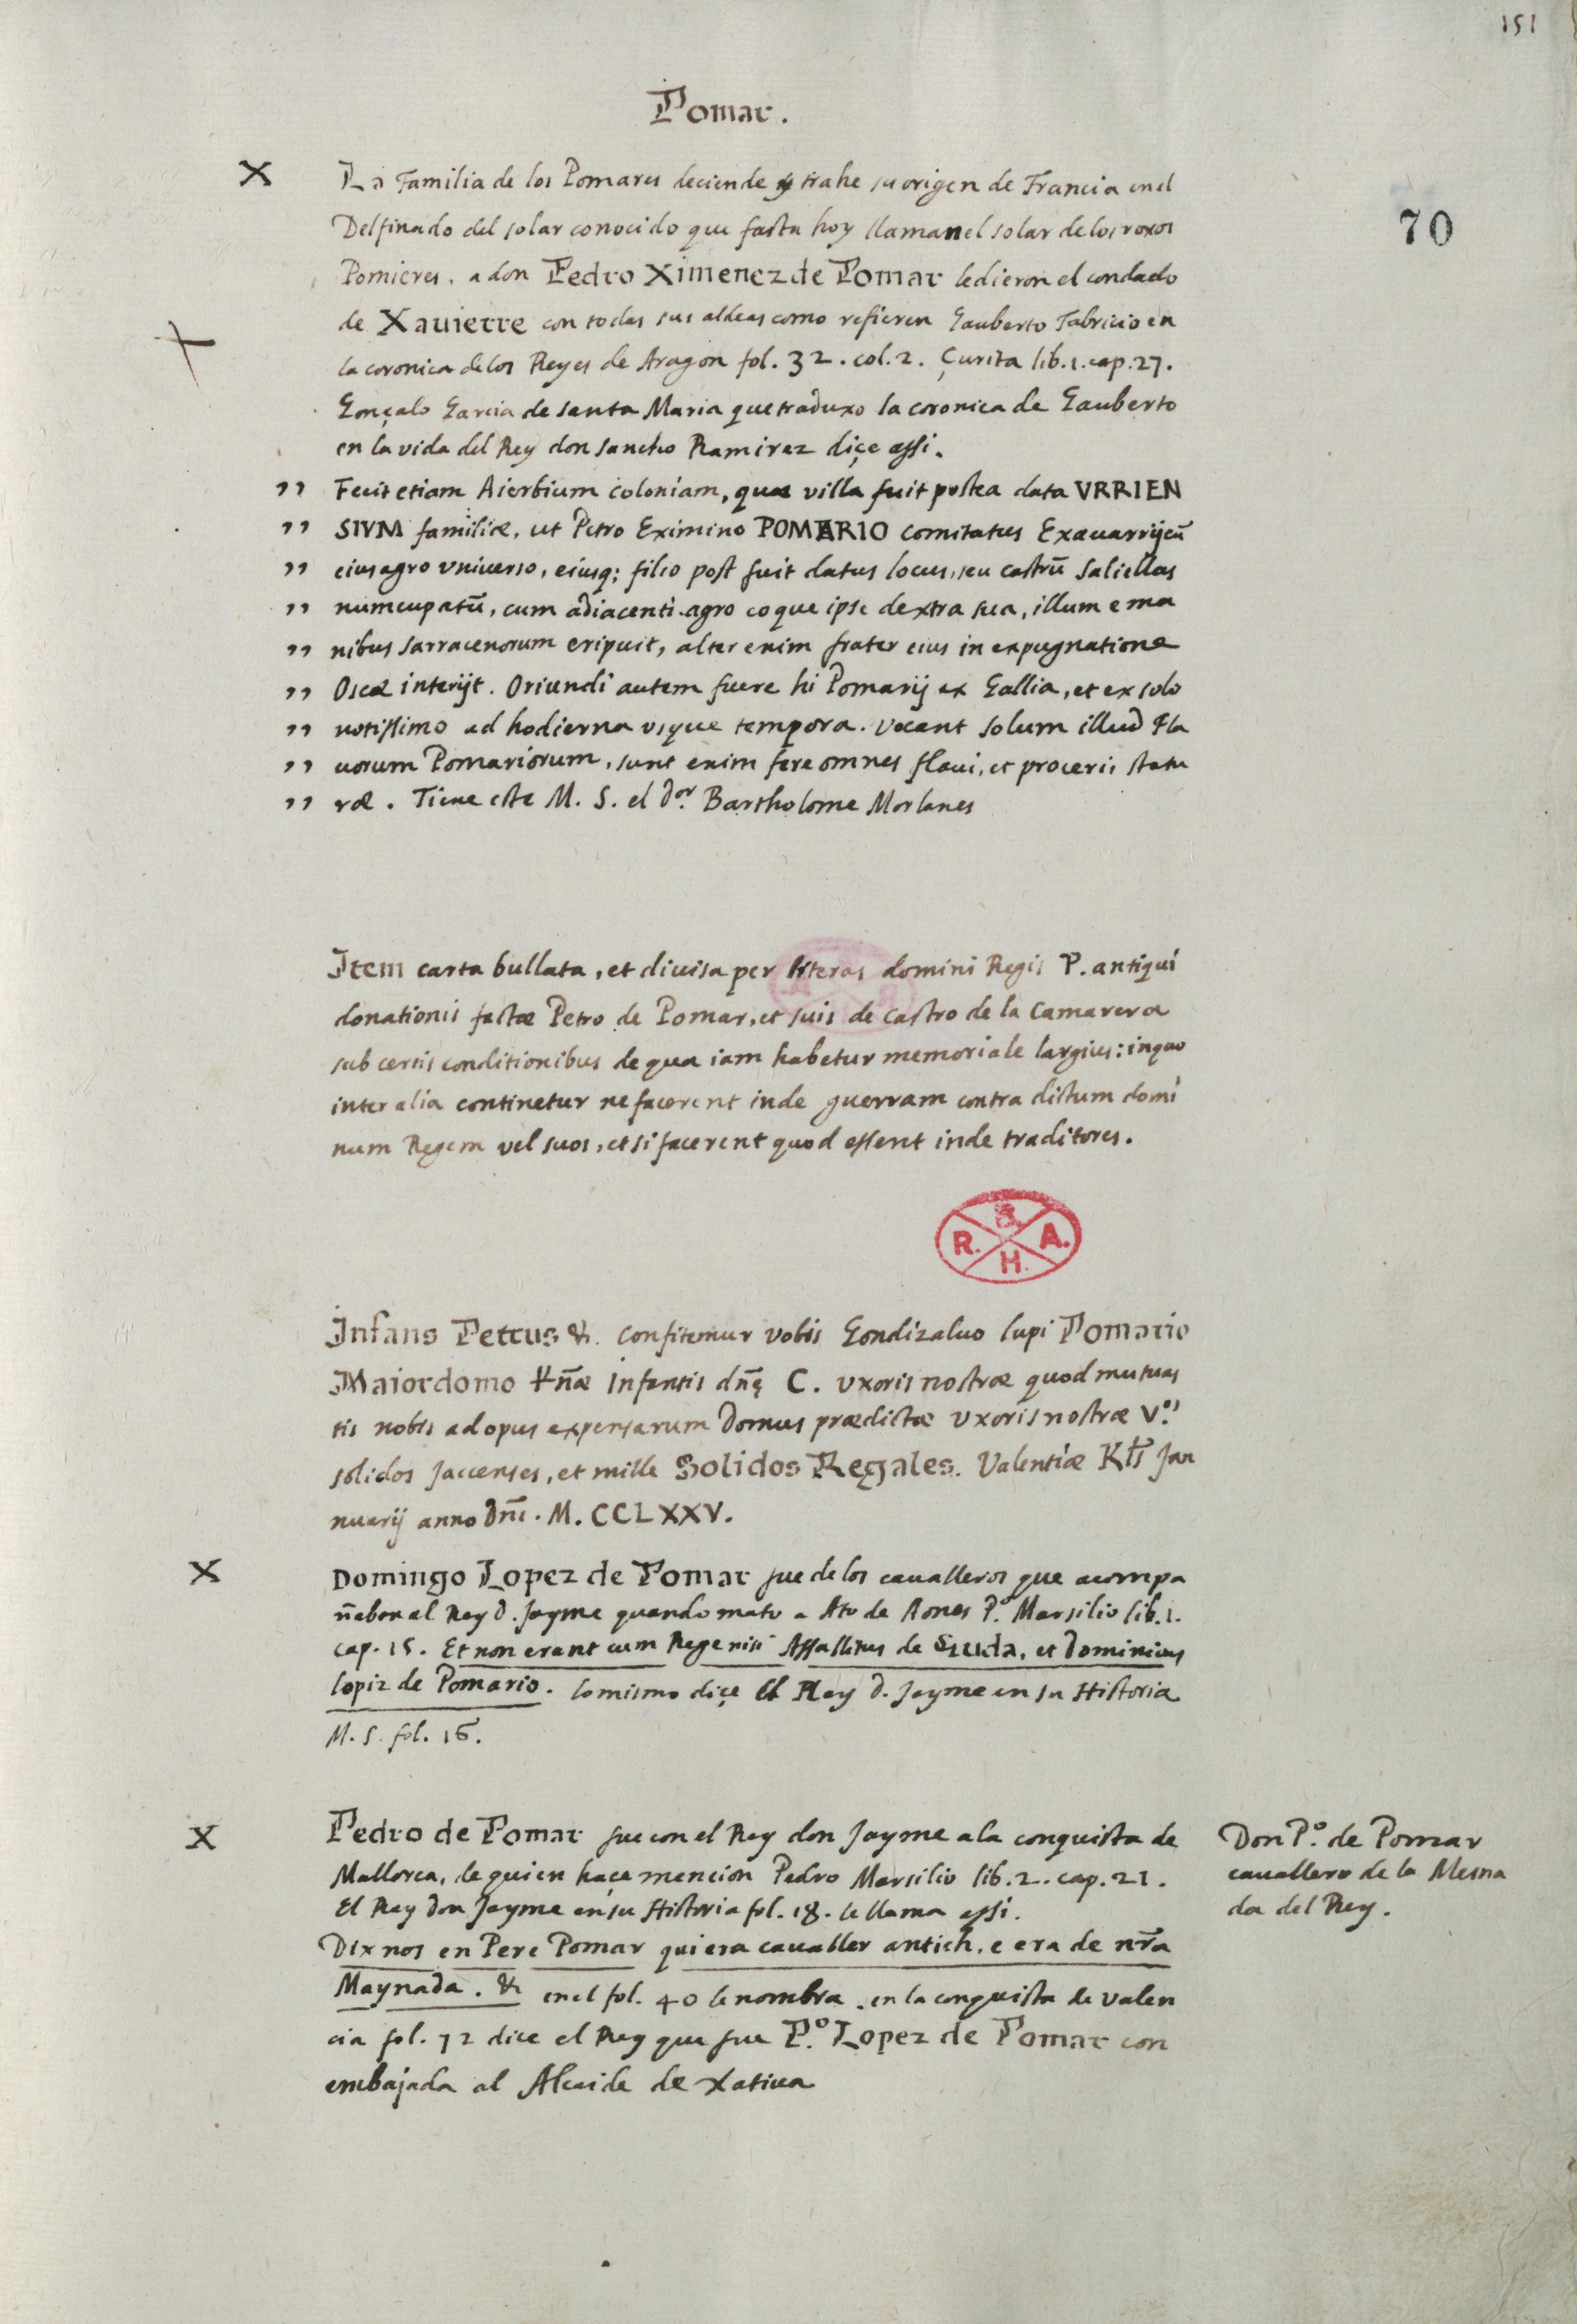 151
Pomar.
70
X La Familia de los Pomares deciende y trahe su origen de Francia en el
Delfinado del solar conocido que fasta hoy llaman el solar de los roxos
Pomieres. a don Pedro Ximenez de Pomar le dieron el condado
de Xauierre con todas sus aldeas como refieren Gauberto Fabricio en
la coronica de los Reyes de Aragon fol. 32. col. 2. Çurita lib. 1. cap. 27.
Gonçalo Garcia de santa Maria que traduxo la coronica de Gauberto
en la vida del Rey don sancho Ramirez diçe assi.
,, Fecit etiam Aierbium coloniam, quæ villa fuit postea data VRRIEN
,, SIVM familiæ, ut Petro Eximino POMARIO comitatus Exauarrij cū
,, eius agro vniuerso, eiusq; filio post fuit datus locus, seu castrū Saliellas
,, numcupatū, cum adiacenti agro eo que ipse dextra sua, illum e ma
,, nibus sarracenorum eripuit, alter enim frater eius in expugnatione
,, Oscæ interijt. Oriundi autem fuere hi Pomarij ex Gallia, et ex solo
,, notissimo ad hodierna vsque tempora. vocant solum illud Fla
,, uorum Pomariorum, sunt enim fere omnes flaui, et proceris statu
,, ræ. Tiene este M. S. el d.or Bartholome Morlanes
Item carta bullata, et diuisa per literas domini Regis P. antiqui
donationis factæ Petro de Pomar, et suis de castro de la Camarera
sub certis conditionibus de qua iam habetur memoriale largius: in quo
inter alia continetur ne facerent inde guerram contra dictum domi
num Regem vel suos, et si facerent quod essent inde traditores.
B. R. A. H.
Infans Petrus &. confitemur vobis Gondizaluo lupi Pomario
Maiordomo infantis dñę C. vxoris nostræ quod mutuas
tis nobis ad opus expensarum domus prædictæ vxoris nostræ V.
solidos Jaccenses, et mille Solidos Regales. Valentiæ Kls Jan
nuarij anno dñi. M. CCLXXV.
X Domingo Lopez de Pomar fue de los caualleros que acompa
ñaban al Rey d. Jayme quando mato a Ato de Fones P.o Marsilio lib. 1.
cap. 15. Et non erant cum Rege nisi Assallitus de Guda, et Dominicus
lopiz de Pomario. lo mismo diçe el Rey d. Jayme en su Historia
M. S. fol. 16.
X Pedro de Pomar fue con el Rey don Jayme a la conquista de
Mallorca, de quien haçe mencion Pedro Marsilio lib. 2. cap. 21.
El Rey don Jayme en su Historia fol. 18. le llama assi.
Dix nos en Pere Pomar qui era caualler antich. e era de nr̃a
Maynada. & en el fol. 40 le nombra. en la conquista de valen
cia fol. 72 dice el Rey que fue P.o Lopez de Pomar con
embajada al Alcaide de Xatiua
Don P.o de Pomar
cauallero de la Mesna
da del Rey.